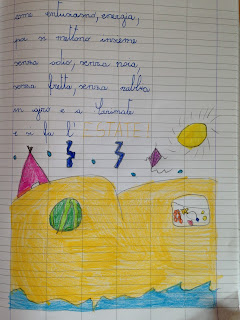 come entusiasmo, energia,
poi si mettono insieme
senza odio, senza noia,
senza fretta, senza rabbia
in giro e a
e si fa l'ESTATE!